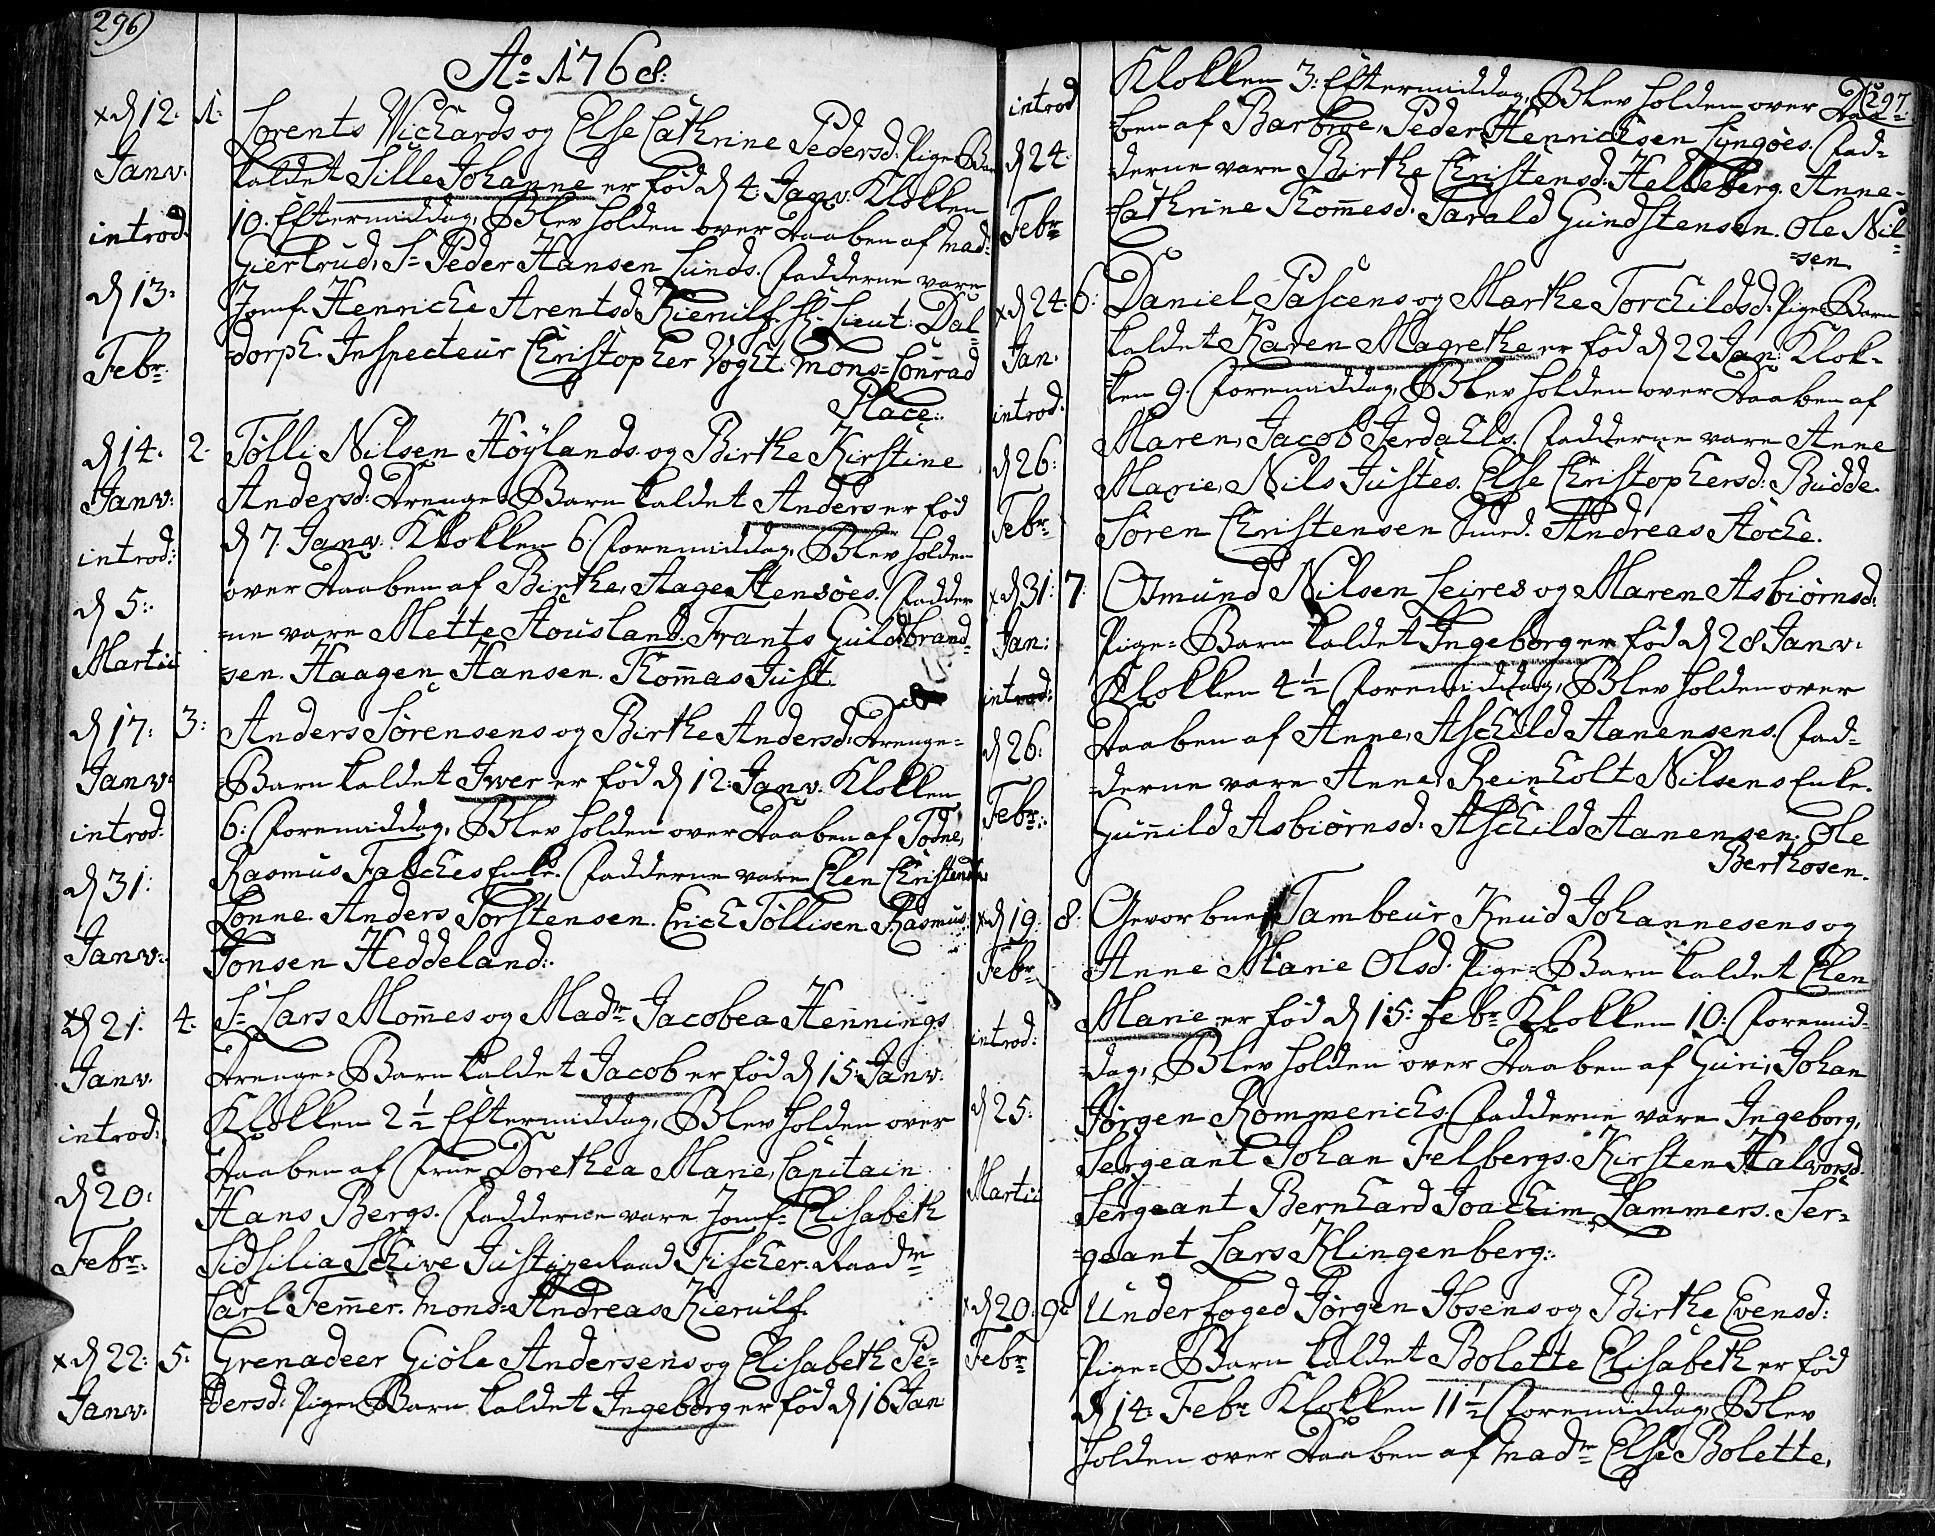 296)
A:o 1768.
x d 12. 1. Lorents Wichards og Else Cathrine Pedersd: Pige-Barn
Janv. kaldet Sille Johanne er fød d 4. Janv. Klokken
introd. 10. Eftermiddag, Blev holden over Daaben af Mad:
Giertrud, Sr Peder Hansen Lunds. Fadderne vare
d 13. Jomf. Henriche Arentsd. Kierulf. Hr. Lieut: Dal-
Febr. -dorph. Inspecteur Christopher Voght. Mons. Conrad
Place.
d 14. 2. Tølli Nilsen Høylands og Birthe Kirstine
Janv: Andersd: Drenge-Barn kaldet Anders er fød
introd: d 7 Janv. Klokken 6. Foremiddag, Blev holden
over Daaben af Birthe, Aage Stensøes. Fadder
d 5. -ne vare Mette Aousland. Frants Guldbrand-
Martii -sen. Haagen Hansen. Thommas Just.
d 17: 3: Anders Sørensens og Birthe Andersd: Drenge-
Janv. -Barn kaldet Iwer er fød d 12. Janv. Klokken
introd. 6: Foremiddag, Blev holden over Daaben af Todne,
d 31: Rasmus Falches Enke. Fadderne vare Elen Christensd:
Lønne. Anders Torstensen. Erich Tøllisen. Rasmus
Janv: Tonsen Heddeland.
x d 21. 4. Sr Lars Mommes og Madme Jacobea Hennings
Janv. Drenge-Barn kaldet Jacob er fød d 15. Janv.
introd: Klokken 2 1/2 Eftermiddag, Blev holden over
Daaben af Frue Dorethea Marie, Capitain
d 20: Hans Bergs. Fadderne vare Jomf. Elisabeth
Febr. Sidsilia Schive Justizeraad Fischer. Raadm
Carl Femmer. Mons. Andreas Kierulf.
x d 22: 5: Grenadeer Giøle Andersens og Elisabeth Pe-
Janv. dersd: Pige-Barn kaldet Ingeborg er fød d 16 Jan
297
introd Klokken 3: Eftermiddag, Blev holden over Daa-
d 24. -ben af Barbroe, Peder Henrichsen Lyngøes. Fad-
derne vare Birthe Christensd: Helleberg. Anne-
Febr -Cathrine Thommesd. Tarald Gundstensen. Ole Nil-
-sen.
x d 24. 6: Daniel Pascens og Marthe Torchildsd: Pige-Barn
Jan. kaldet Karen Magrethe er fød d 22 Jan: Klok-
introd. -ken 9. Foremiddag, Blev holden over Daaben af
Maren, Jacob Jerdahls. Fadderne vare Anne
d 26: Marie, Nils Justes. Else Christophersd: Budde.
Febr Søren Christensen Smed. Andreas Høche.
x d 31: 7: Osmund Nilsen Leires og Maren Asbiørnsd:
Jan: Pige-Barn kaldet Ingeborg er fød d 28 Janv.
introd: Klokken 4 1/2 Foremiddag, Blev holden over
d 26. Daaben af Anne, Aschild Aanensens. Fad-
-derne vare Anne, Reinholt Nilsens Enke.
Febr: Gunnild Asbiørnsd: Aschild Aanensen. Ole
Berthosen.
x d 19: 8: Gevorbne Tambeur Knud Johannesens og
Febr Anne Marie Olsd. Pige-Barn kaldet Elen
introd: Marie er fød d 15: Febr Klokken 10: Foremid-
-dag, Blev holden over Daaben af Guri, Johan
d 25: Jørgen Rommerichs. Fadderne vare Ingeborg,
Sergeant Johan Felbergs. Kirsten Halvorsd.
Martii Sergeant Bernhard Joachim Lammers. Ser-
-geant Lars Klingenberg.
x d 20. 9. Underfoged Jørgen Ibsens og Birthe Evensd:
Febr Pige-Barn kaldet Bolette Elisabeth er fød
d 14: Febr Klokken 11 1/2 Foremiddag, Blev
holden over Daaben af Madm Else Bolette,